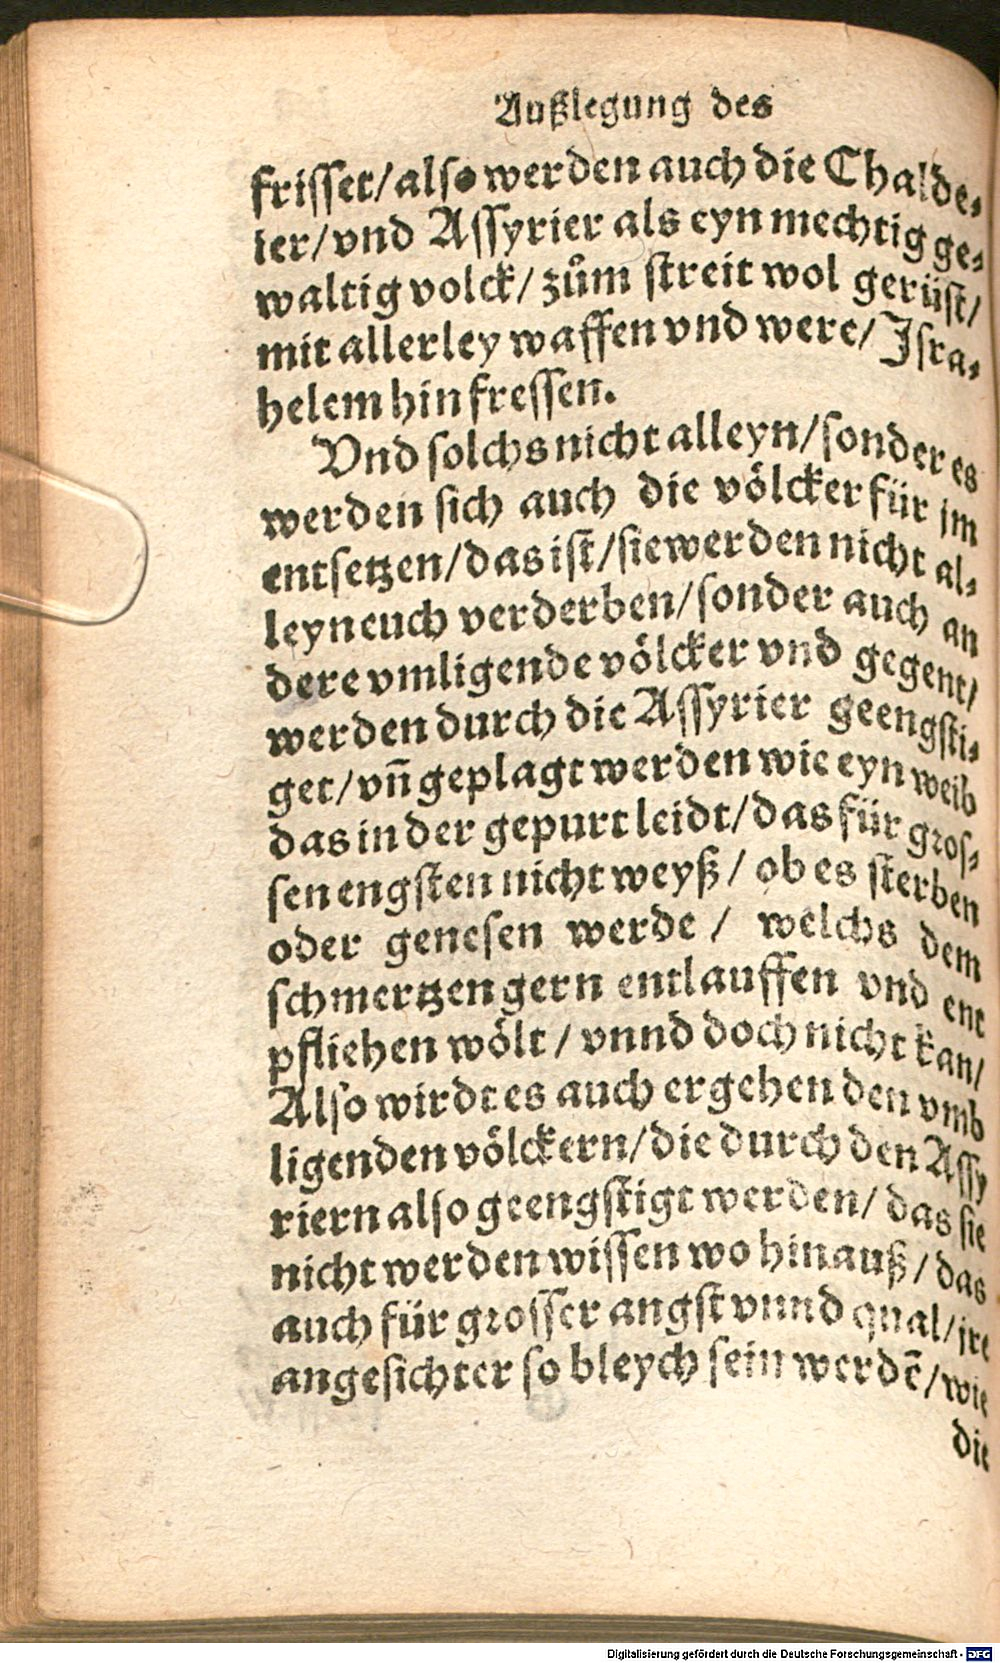 Außlegung des
frisset/also werden auch die Chalde-
ier/vnd Assyrier als eyn mechtig ge-
waltig volck/zům streit wol gerüst/
mit allerley waffen vnd were/Isra-
helem hin fressen.
Vnd solchs nicht alleyn/sonder es
werden sich auch die völcker für jm
entsetzen/das ist/sie werden nicht al-
leyn euch verderben/sonder auch an
dere vmligende völcker vnd gegent/
werden durch die Assyrier geengsti-
get/vñ geplagt werden wie eyn weib
das in der gepurt leidt/das für gros-
sen engsten nicht weyß/ ob es sterben
oder genesen werde / welchs dem
schmertzen gern entlauffen vnd ent
pfliehen wölt / vnnd doch nicht kan/
Also wirdt es auch ergehen den vmb
ligenden völckern/die durch den Assy
riern also geengstigt werden/ das sie
nicht werden wissen wo hinauß/das
auch für grosser angst vnnd qual/jre
angesichter so bleych sein werdē/wie
die
Digitalisierung gefördert durch die Deutsche Forschungsgemeinschaft - DFG